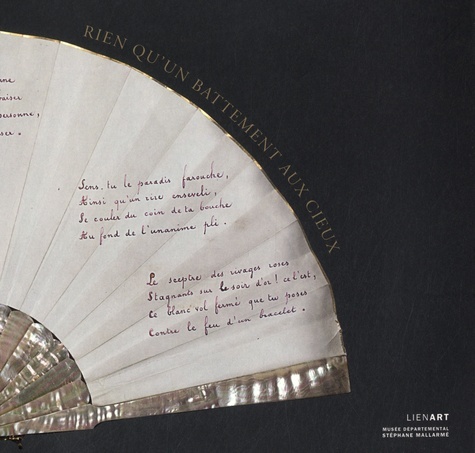 RIEN QU'UN BATTEMENT AUX CIEUX
personne,
Sens-tu le paradis farouche,
Ainsi qu'un rire enseveli,
Se couler du coin de ta bouche
Au fond de l'unanime pli.
Le sceptre des rivages roses
Stagnants sur le soir d'or ! ce l'est,
Ce blanc vol fermé que tu poses
Contre le feu d'un bracelet.
LIENART
MUSÉE DÉPARTEMENTAL
STÉPHANE MALLARMÉ